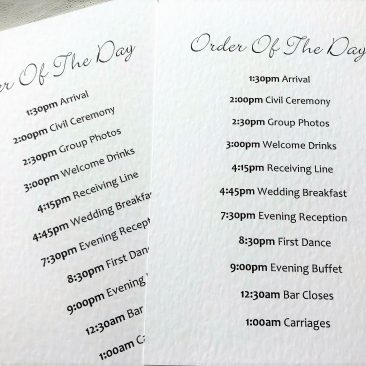 er Of The Day
1:30pm Arrival
2:00pm Civil Ceremony
2:30pm Group Photos
3:00pm Welcome Drinks
4:15pm Receiving Line
4:45pm Wedding Breakfas
7:30pm Evening Reception
8:30pm First Dance
9:00pm Evening
12:30am Bar
1:00am Ca
Order Of The Day
1:30pm Arrival
2:00pm Civil Ceremony
2:30pm Group Photos
3:00pm Welcome Drinks
4:15pm Receiving Line
4:45pm Wedding Breakfast
7:30pm Evening Reception
8:30pm First Dance
9:00pm Evening Buffet
12:30am Bar Closes
1:00am Carriages